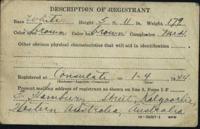 DESCRIPTION OF REGISTRANT
Race White Height 5-11 Weight 179
Color Brown Color Brown Complexion
Other obvious physical characteristics that will aid in identification
Registered at Consulate 1-4 44
Present mailing address of registrant as shown on line 2, Form 1-F
Street, Kalgoorlie
Western Australia, Australia